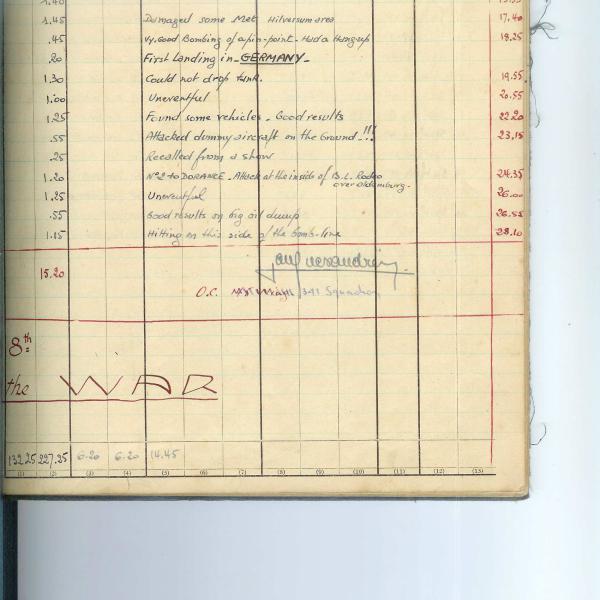 1.45 Damaged some Met Hilversum area 17.40
.45 Vy. Good Bombing of a pin-point. Had a Hang up 18.25
.20 First Landing in GERMANY
1.30 Could not drop tank. 19.55
1.00 Uneventful 20.55
1.25 Found some vehicles - Good results 22.20
.55 Attacked dummy aircraft on the Ground!!! 23.15
.25 Recalled from a show
1.20 N°2 to DORANCE - Attack at the inside of B.L. Rodeo 24.35
over Oldemburg.
1.25 Uneventful 26.00
.55 Good results on big oil dump 26.55
1.15 Hitting on this side of the bomb-line 28.10
15.20
O.C. 341 Squadron
8th
the WAR
132.25 227.25 6.20 6.20 14.45
(1) (2) (3) (4) (5) (6) (7) (8) (9) (10) (11) (12) (13)